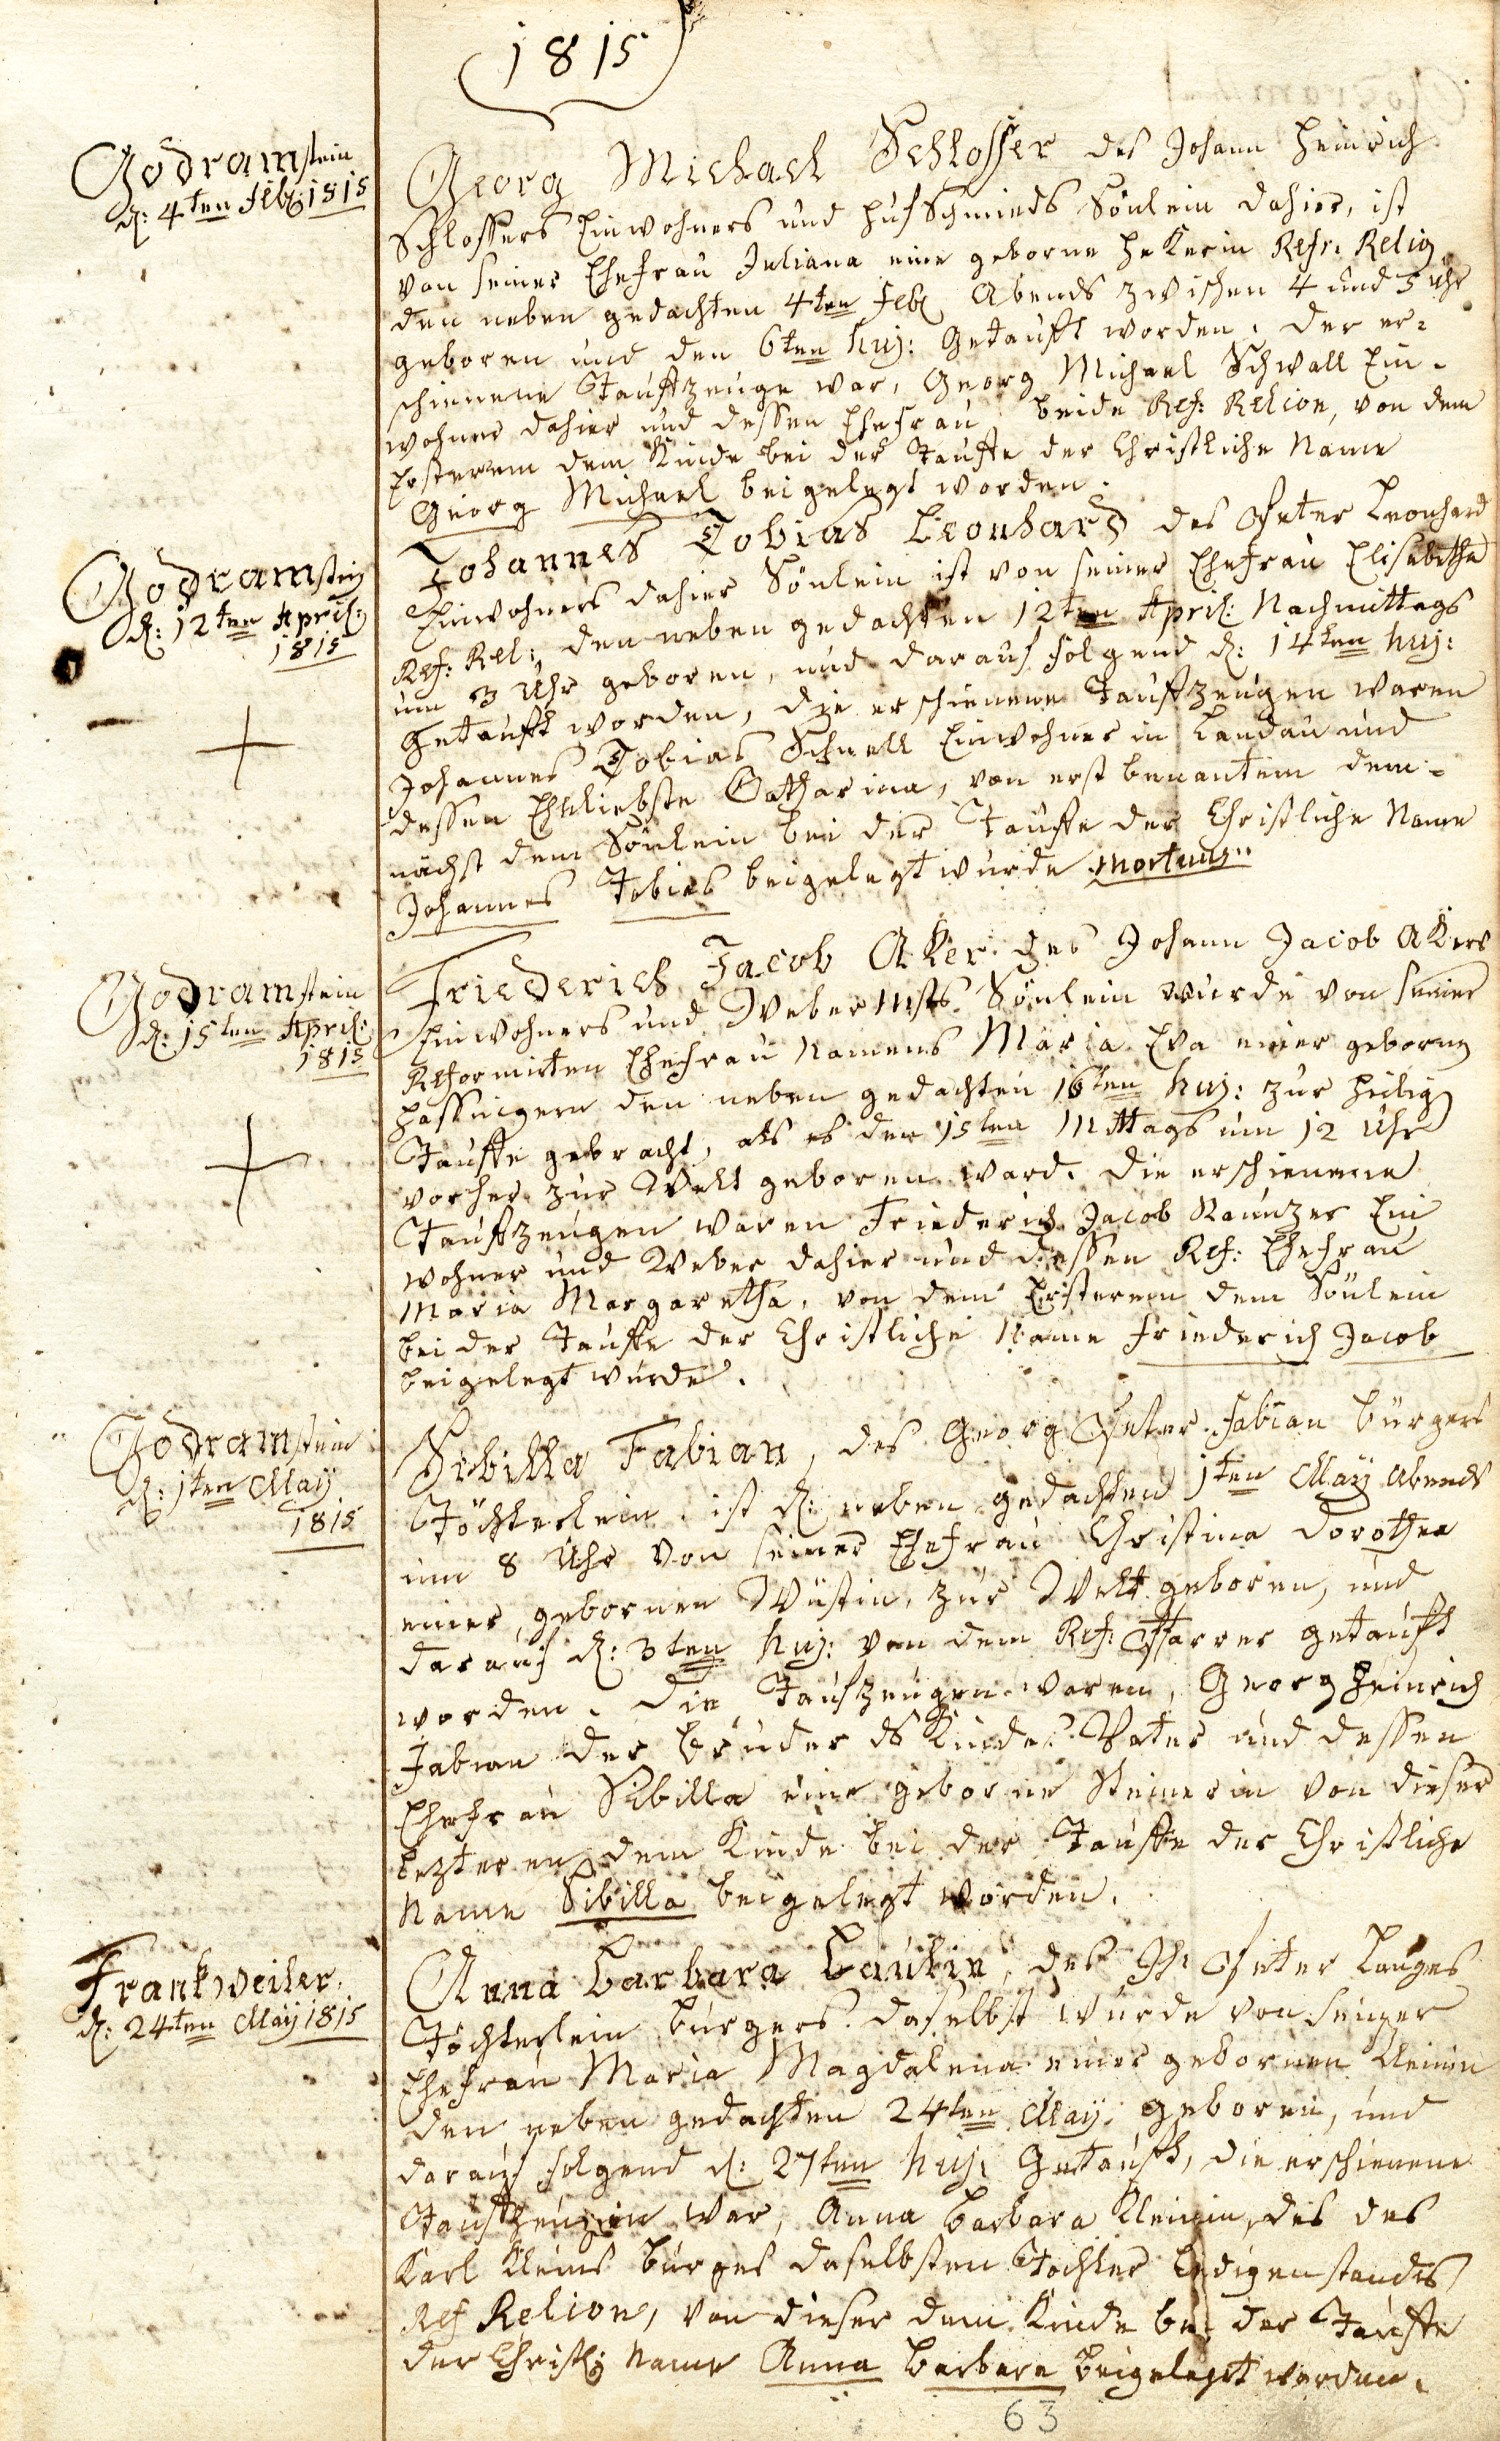 1815
Godramstein
d: 4ten Feb 1815
Georg Michael Schlosser des Johann Heinrich
Schlossers Einwohners und Hufschmieds Sönlein dahier, ist
von seiner Ehefrau Juliana eine geborne Hekerin Refr: Relig.
den neben gedachten 4ten Feb Abends zwischen 4 und 5 Uhr
geboren und den 6ten huj: Getauft worden. Der er-
schienene Taufzeuge war, Georg Michael Schwall Ein-
wohner dahier und dessen Ehefrau beide Ref: Relion, von dem
Ersterem dem Kinde bei der Tauffe der Christliche Name
Georg Michael beigelegt worden.
Godramstein
d: 12ten April:
1815
Johannes Tobias Leonhard des Peter Leonhard
Einwohners dahier Sönlein ist von seiner Ehefrau Elisabetha
Ref: Rel: den neben gedachten 12ten April: Nachmittags
um 3 Uhr geboren, und darauf folgend d: 14ten huj:
Getauft worden, die erschienene Taufzeugen waren
Johannes Tobias Schnell Einwohner in Landau und
dessen Eheliebste Catharina, von erst benantem dem-
nächst dem Sönlein bei der Tauffe der Christliche Name
Johannes Tobias beigelegt wurde mortuus
Godramstein
d: 15ten April:
1815
Friederich Jacob Aker des Johann Jacob Akers
Einwohners und Weber Msts. Sönlein wurde von seiner
Reformirten Ehefrau Namens Maria Eva einer geborne
den neben gedachten 16ten huj: zur heilig
Tauffe gebracht, als es den 15ten Mittags um 12 Uhr
vorher zur Welt geboren ward. Die erschienene
Taufzeugen waren Friederich Jacob Kuntzer Ein
wohner und Weber dahier und dessen Ref: Ehefrau
Maria Margaretha, von dem Ersterem dem Sönlein
bei der Tauffe der Christliche Name Friederich Jacob
beigelegt wurde.
Godramstein
d: 1ten May
1815
Sibilla Fabian, des Georg Peter Fabian Bürgers
Töchterlein, ist d: neben gedachten 1ten May Abends
um 8 Uhr von seiner Ehefrau Christina Dorothea
einer, gebornen Wüstin, zur Welt geboren, und
darauf d: 3ten huj: von dem Ref: Pfarrer getauft
worden. Die Taufzeugen waren, Georg Heinrich
Fabian der Bruder ds Kindes Vater und dessen
Ehefrau Sibilla eine geborne Steinerin von dieser
lezteren, dem Kinde bei der Tauffe der Christliche
Name Sibilla beigelegt worden.
Frankweiler.
d: 24ten May 1815
Anna Barbara Laukin, des Peter Lauges
Töchterlein Bürgers daselbst wurde von seiner
Ehefrau Maria Magdalena einer gebornen Kleinin
den neben gedachten 24ten May. geboren, und
darauf folgend d: 27ten huj: Getauft, die erschienene
Taufzeugin war, Anna Barbara Kleinin, des
Karl Kleins Bürger daselbsten Tochter ledigen standes,
Ref Relion, von dieser dem Kinde bei der Tauffe
der Christl: Name Anna Barbara beigelegt worden.
63